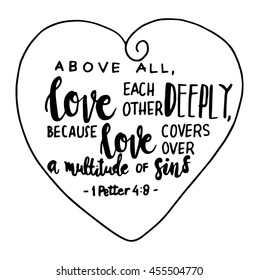 ABOVE ALL,
love EACH OTHER DEEPLY,
BECAUSE love COVERS OVER
a multitude OF sins
- 1 Petter 4:8 -
shutterstock.com · 455504770